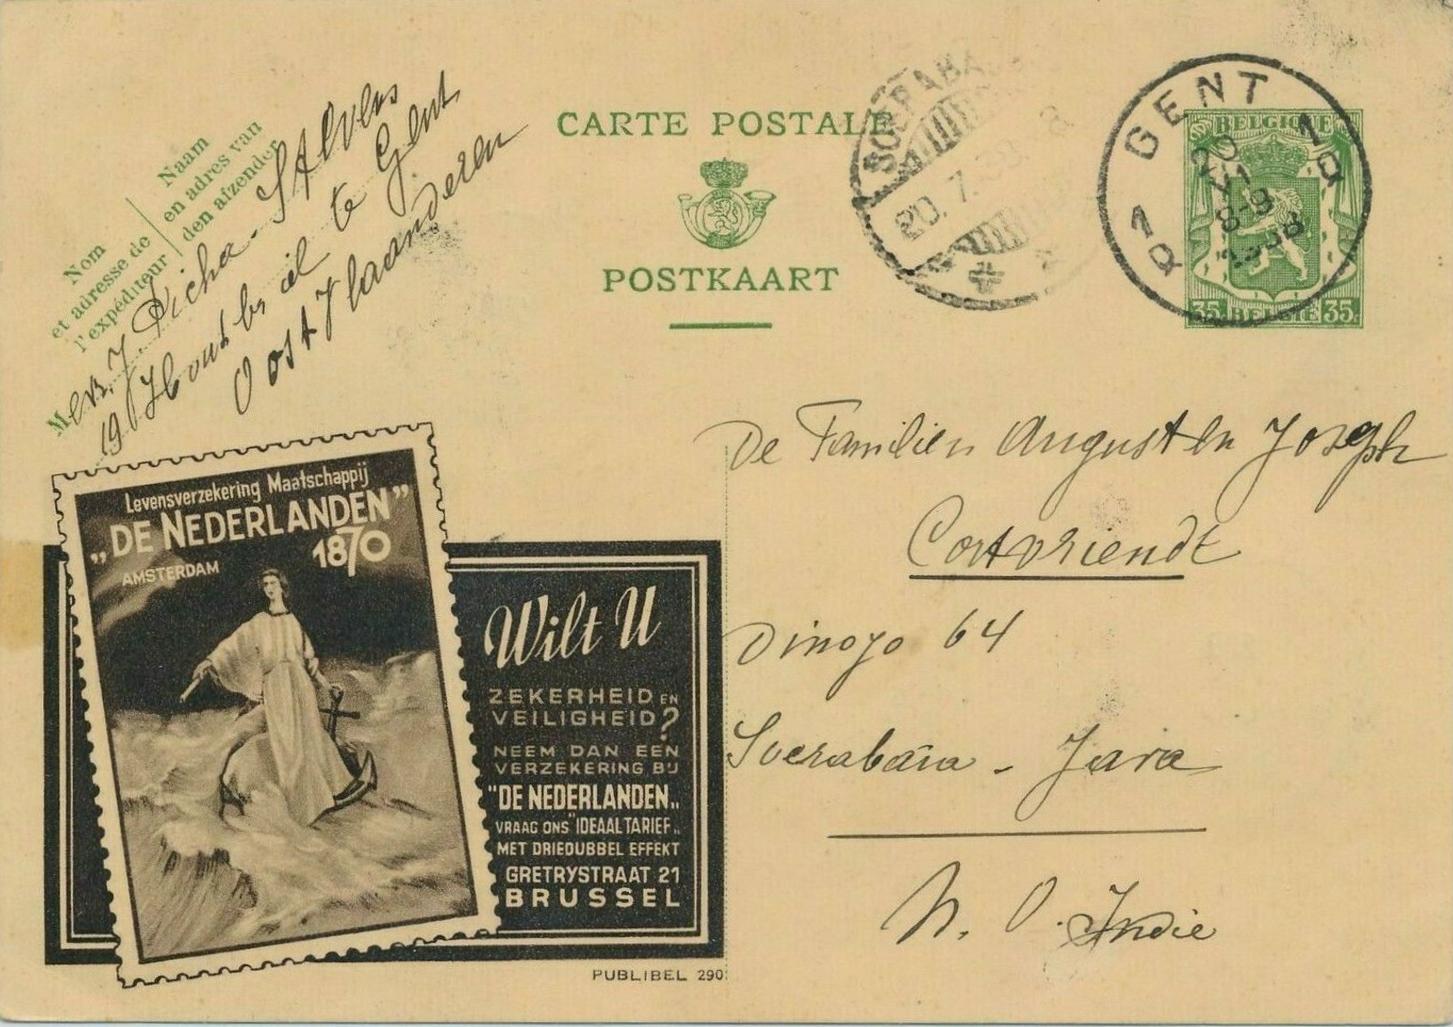 CARTE POSTALE
POSTKAART
Nom
et adresse de
l'expéditeur
Naam
en adres van
den afzender
M
19
te Gent
Oost Vlaanderen
SOERABA
20.7.38
GENT
1
Q
20
VI
8-9
1938
1
Q
BELGIQUE
35 BELGIE 35
De Familien August en Joseph
Cortvriendt
Dinojo 64
Soerabaia - Java
N. O. Indie
Levensverzekering Maatschappij
„DE NEDERLANDEN”
1870
AMSTERDAM
Wilt U
ZEKERHEID EN
VEILIGHEID?
NEEM DAN EEN
VERZEKERING BIJ
"DE NEDERLANDEN„
VRAAG ONS "IDEAALTARIEF„
MET DRIEDUBBEL EFFEKT
GRETRYSTRAAT 21
BRUSSEL
PUBLIBEL 290